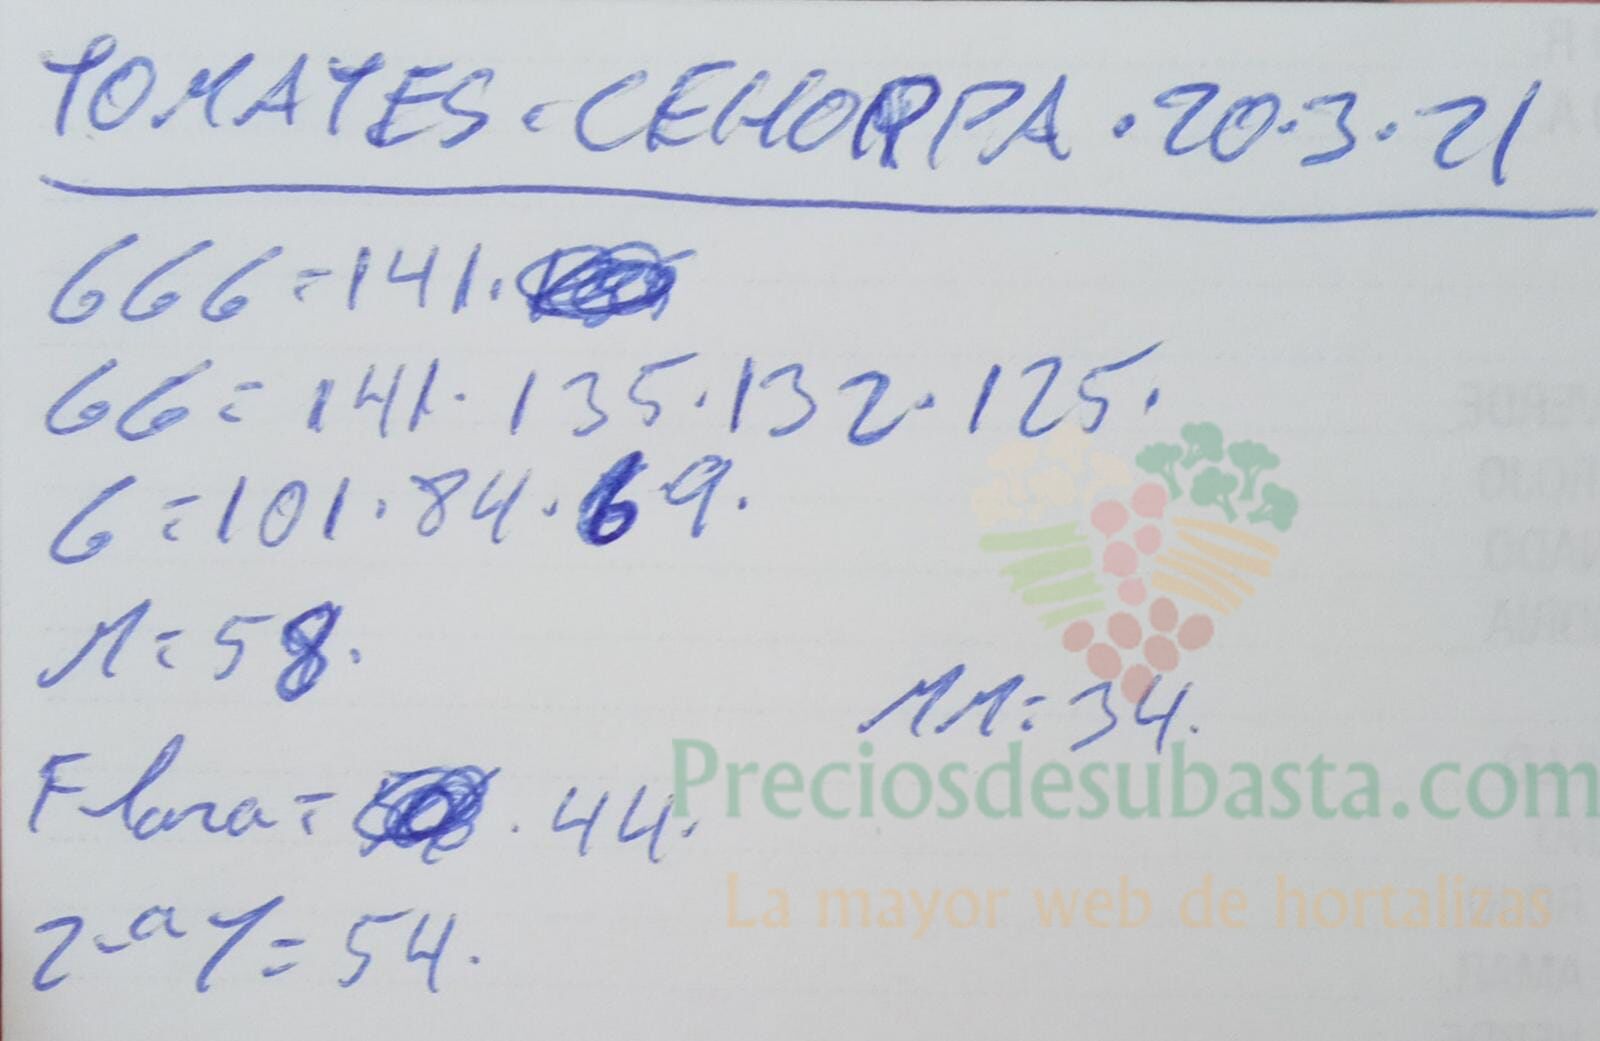 TOMATES · CEHORPA · 20·3·21
666 = 141.
66 = 141 · 135 · 132 · 125.
6 = 101 · 84 · 69.
M = 58.
MM = 34.
Flora = . 44.
2ª T = 54.
Preciosdesubasta.com
La mayor web de hortalizas